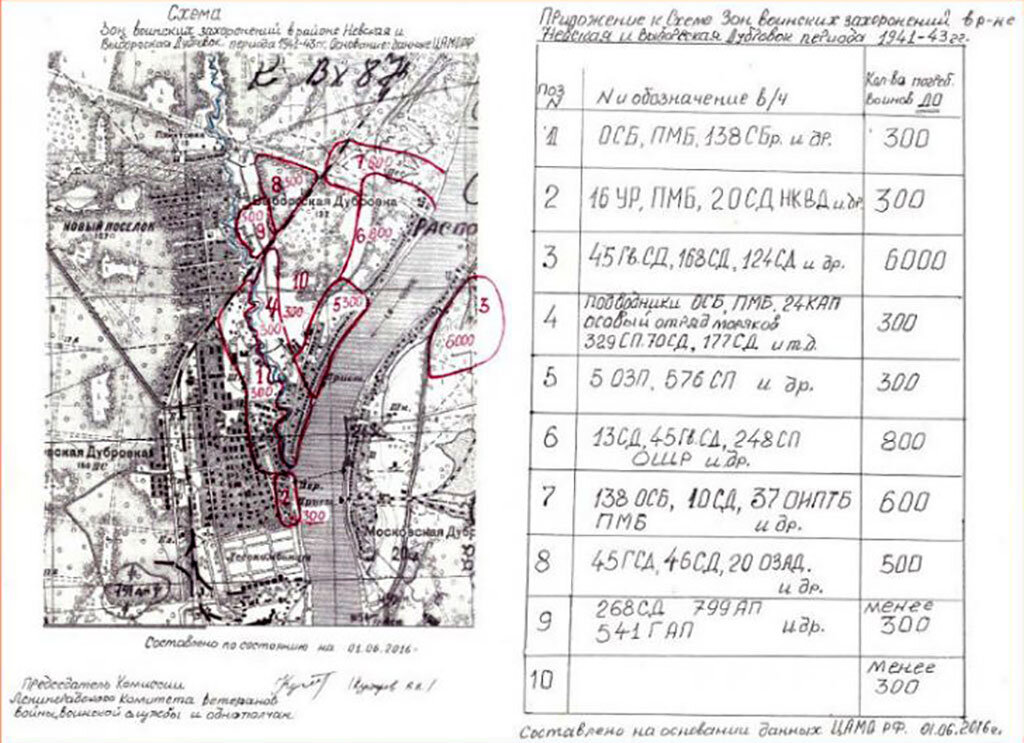 Схема
Зон воинских захоронений в районе Невская и
Выборгская Дубровок периода 1941-43 гг. Основание: данные ЦАМО РФ
К Вх 87
Пильтовка
НОВЫЙ ПОСЕЛОК
Выборгская Дубровка
РАСПО
7 600
8 500
300
9
6 800
10
5 300
3
6000
4
300
300
1
300
2
300
вская Дубровка
Московская Дубр
Лесокомбинат
Составлено по состоянию на 01.06.2016г
Председатель Комиссии
Ленинградского Комитета ветеранов
войны, воинской службы и однополчан.
Приложение к Схеме Зон воинских захоронений в р-не
Невская и Выборгская Дубровок периода 1941-43 гг.
Поз N
N и обозначение в/ч
Кол-ва погреб. воинов ДО
1 ОСБ, ПМБ, 138 СБр. и др. 300
2 16 УР, ПМБ, 20 СД НКВД и др. 300
3 45 Гв. СД, 168 СД, 124 СД и др. 6000
4 подводники ОСБ, ПМБ, 24 КАП
особый отряд моряков
329 СП. 70 СД, 177 СД и т.д. 300
5 5 ОЗП, 576 СП и др. 300
6 13 СД, 45 Гв. СД, 248 СП
ОШР и др. 800
7 138 ОСБ, 10 СД, 37 ОИПТБ
ПМБ и др. 600
8 45 ГСД, 46 СД, 20 ОЗАД.
и др. 500
9 268 СД 799 АП
541 ГАП и др. менее 300
10 менее 300
Составлено на основании данных ЦАМО РФ. 01.06.2016г.